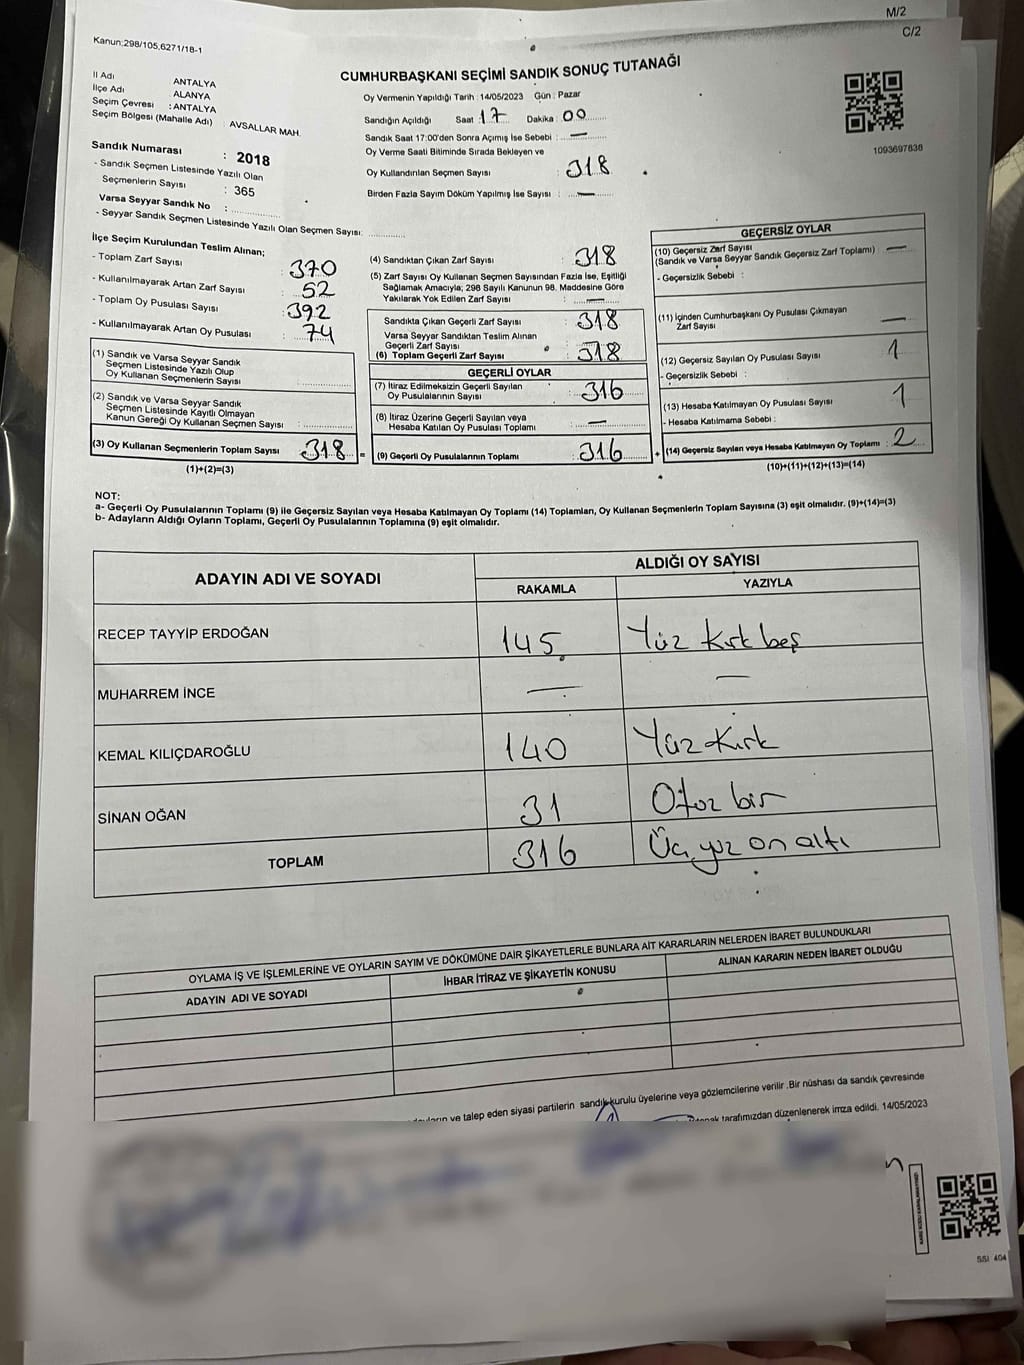 M/2
C/2
Kanun:298/105,6271/18-1
CUMHURBAŞKANI SEÇİMİ SANDIK SONUÇ TUTANAĞI
İl Adı ANTALYA
İlçe Adı ALANYA
Seçim Çevresi : ANTALYA
Seçim Bölgesi (Mahalle Adı) AVSALLAR MAH.
Sandık Numarası : 2018
- Sandık Seçmen Listesinde Yazılı Olan
Seçmenlerin Sayısı : 365
Varsa Seyyar Sandık No :
- Seyyar Sandık Seçmen Listesinde Yazılı Olan Seçmen Sayısı:
Oy Vermenin Yapıldığı Tarih : 14/05/2023 Gün : Pazar
Sandığın Açıldığı Saat : 17 Dakika : 00
Sandık Saat 17:00'den Sonra Açımış İse Sebebi : —
Oy Verme Saati Bitiminde Sırada Bekleyen ve
Oy Kullandırılan Seçmen Sayısı : 318
Birden Fazla Sayım Döküm Yapılmış İse Sayısı : —
1093697838
İlçe Seçim Kurulundan Teslim Alınan;
- Toplam Zarf Sayısı : 370
- Kullanılmayarak Artan Zarf Sayısı : 52
- Toplam Oy Pusulası Sayısı : 392
- Kullanılmayarak Artan Oy Pusulası : 74
(1) Sandık ve Varsa Seyyar Sandık
Seçmen Listesinde Yazılı Olup
Oy Kullanan Seçmenlerin Sayısı :
(2) Sandık ve Varsa Seyyar Sandık
Seçmen Listesinde Kayıtlı Olmayan
Kanun Gereği Oy Kullanan Seçmen Sayısı :
(3) Oy Kullanan Seçmenlerin Toplam Sayısı : 318 =
(1)+(2)=(3)
(4) Sandıktan Çıkan Zarf Sayısı : 318
(5) Zarf Sayısı Oy Kullanan Seçmen Sayısından Fazla İse, Eşitliği
Sağlamak Amacıyla; 298 Sayılı Kanunun 98. Maddesine Göre
Yakılarak Yok Edilen Zarf Sayısı : —
Sandıkta Çıkan Geçerli Zarf Sayısı : 318
Varsa Seyyar Sandıktan Teslim Alınan
Geçerli Zarf Sayısı :
(6) Toplam Geçerli Zarf Sayısı : 318
GEÇERLİ OYLAR
(7) İtiraz Edilmeksizin Geçerli Sayılan
Oy Pusulalarının Sayısı : 316
(8) İtiraz Üzerine Geçerli Sayılan veya
Hesaba Katılan Oy Pusulası Toplamı : —
(9) Geçerli Oy Pusulalarının Toplamı : 316 +
GEÇERSİZ OYLAR
(10) Geçersiz Zarf Sayısı
(Sandık ve Varsa Seyyar Sandık Geçersiz Zarf Toplamı) : —
- Geçersizlik Sebebi :
(11) İçinden Cumhurbaşkanı Oy Pusulası Çıkmayan
Zarf Sayısı : —
(12) Geçersiz Sayılan Oy Pusulası Sayısı : 1
- Geçersizlik Sebebi :
(13) Hesaba Katılmayan Oy Pusulası Sayısı : 1
- Hesaba Katılmama Sebebi :
(14) Geçersiz Sayılan veya Hesaba Katılmayan Oy Toplamı : 2
(10)+(11)+(12)+(13)=(14)
NOT:
a- Geçerli Oy Pusulalarının Toplamı (9) ile Geçersiz Sayılan veya Hesaba Katılmayan Oy Toplamı (14) Toplamları, Oy Kullanan Seçmenlerin Toplam Sayısına (3) eşit olmalıdır. (9)+(14)=(3)
b- Adayların Aldığı Oyların Toplamı, Geçerli Oy Pusulalarının Toplamına (9) eşit olmalıdır.
ADAYIN ADI VE SOYADI ALDIĞI OY SAYISI
RAKAMLA YAZIYLA
RECEP TAYYİP ERDOĞAN 145 Yüz Kırk beş
MUHARREM İNCE — —
KEMAL KILIÇDAROĞLU 140 Yüz Kırk
SİNAN OĞAN 31 Otuz bir
TOPLAM 316 Üç yüz on altı
OYLAMA İŞ VE İŞLEMLERİNE VE OYLARIN SAYIM VE DÖKÜMÜNE DAİR ŞİKAYETLERLE BUNLARA AİT KARARLARIN NELERDEN İBARET BULUNDUKLARI
ADAYIN ADI VE SOYADI İHBAR İTİRAZ VE ŞİKAYETİN KONUSU ALINAN KARARIN NEDEN İBARET OLDUĞU
ve talep eden siyasi partilerin sandık kurulu üyelerine veya gözlemcilerine verilir .Bir nüshası da sandık çevresinde
tarafımızdan düzenlenerek imza edildi. 14/05/2023
SSI 404